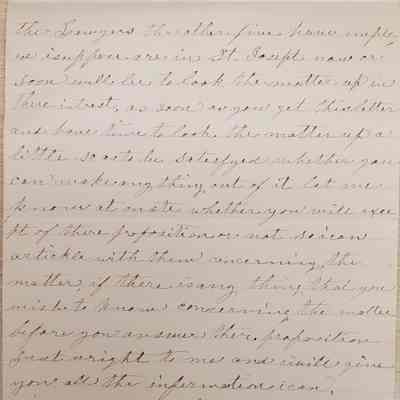 the Lawyers the other five have imploy
ed isuppose are in St. Joseph now or
soon will be to look the matter up in
there intrest, as soon as you get this letter
and have time to look the matter up a
little so as to be satisfyed whether you
can make any thing out of it let me
know at onste whether you will exce
pt of there proposition or not so i can
artickle with them concerning the
matter, if there is any thing that you
wish to know concerning the matter
before you answer there proposition
just wright to me and i will give
you all the information i can.